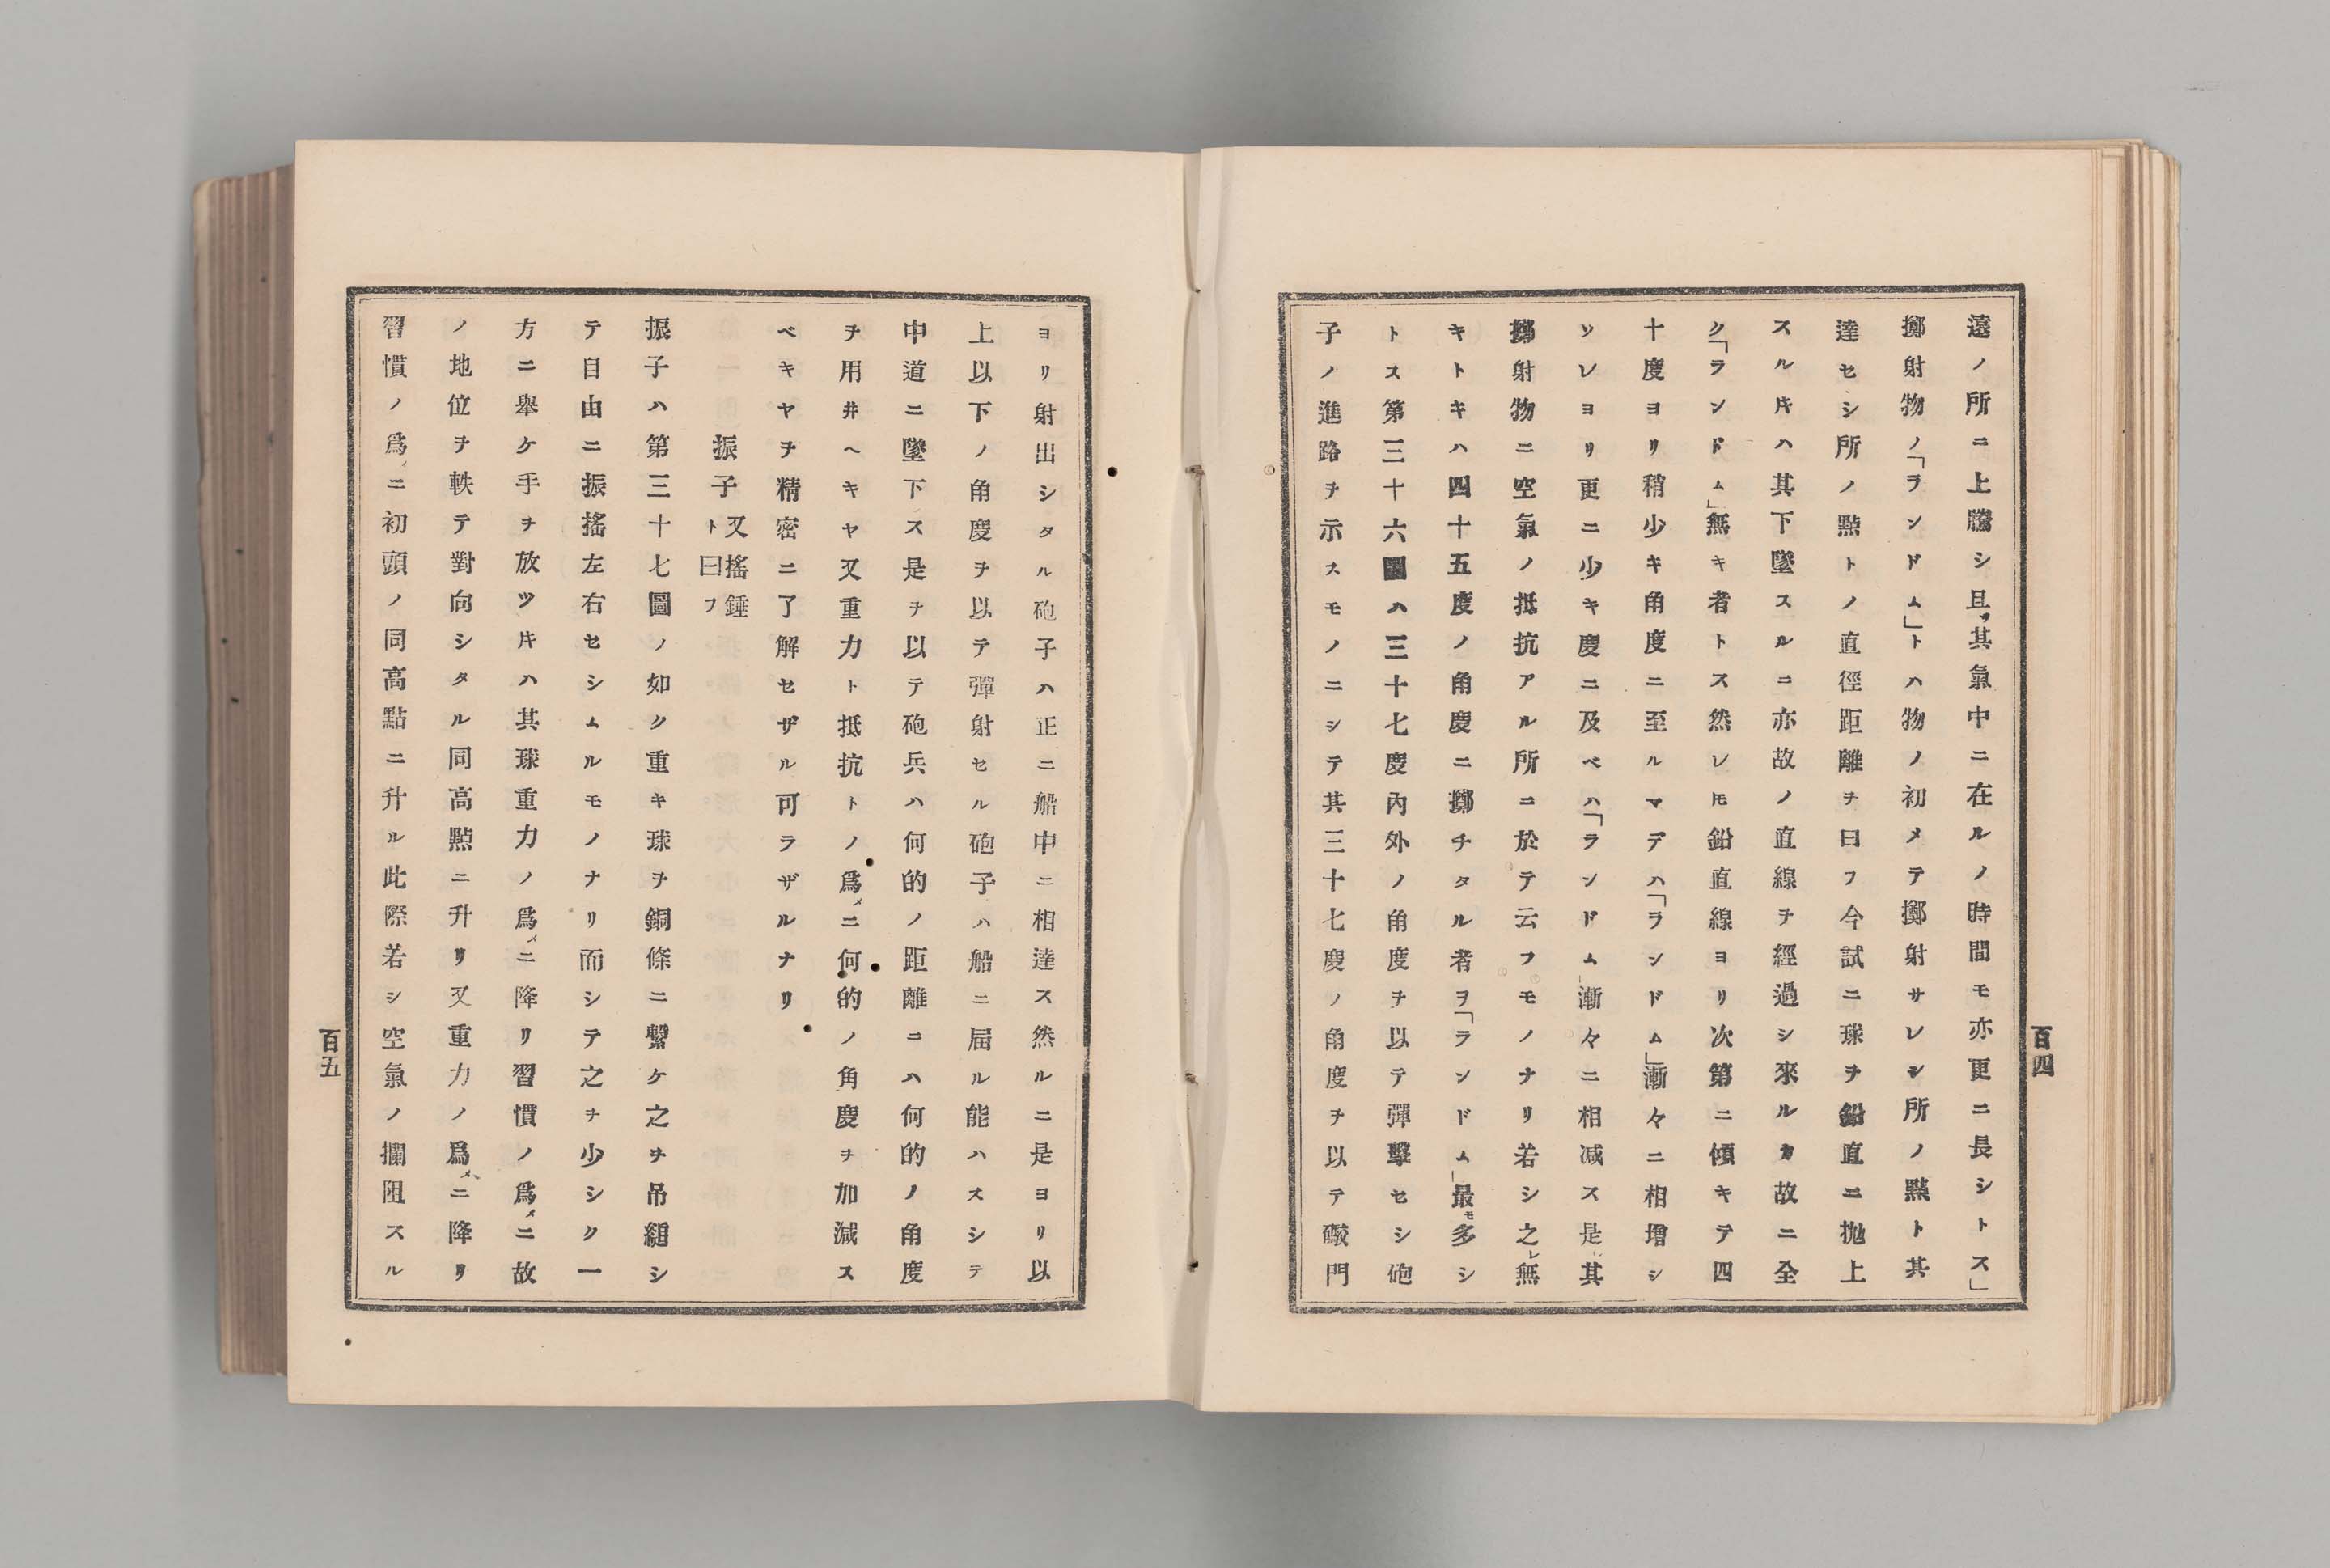 遠ノ所ニ上騰シ且ツ其氣中ニ在ルノ時間モ亦更ニ長シトス」
擲射物ノ「ランドム」トハ物ノ初メテ擲射サレシ所ノ點ト其
達セシ所ノ點トノ直徑距離ヲ曰フ今試ニ球ヲ鉛直ニ抛上
スル片ハ其下墜スルニ亦故ノ直線ヲ經過シ來ルカ故ニ全
ク「ランドム」無キ者トス然レ𪜈鉛直線ヨリ次第ニ傾キテ四
十度ヨリ稍少キ角度ニ至ルマデハ「ランドム」漸々ニ相增シ
ソレヨリ更ニ少キ慶ニ及ベハ「ランドム」漸々ニ相減ス是其
擲射物ニ空氣ノ抵抗アル所ニ於テ云フモノナリ若シ之レ無
キトキハ四十五度ノ角慶ニ擲チタル者ヲ「ランドム」最モ多シ
トス第三十六圖ハ三十七慶內外ノ角度ヲ以テ彈擊セシ砲
子ノ進路ヲ示スモノニシテ其三十七慶ノ角度ヲ以テ礮門
百四
ヨリ射出シタル砲子ハ正ニ船中ニ相達ス然ルニ是ヨリ以
上以下ノ角慶ヲ以テ彈射セル砲子ハ船ニ屆ル能ハスシテ
中道ニ墜下ス是ヲ以テ砲兵ハ何的ノ距離ニハ何的ノ角度
ヲ用井ヘキヤ又重力ト抵抗トノ爲メニ何的ノ角慶ヲ加減ス
ベキヤヲ精密ニ了解セザル可ラザルナリ
振子 又搖錘ト曰フ
振子ハ第三十七圖ノ如ク重キ球ヲ銅條ニ繫ケ之ヲ吊縋シ
テ自由ニ振搖左右セシムルモノナリ而シテ之ヲ少シク一
方ニ舉ケ手ヲ放ツ片ハ其球重力ノ爲メニ降リ習慣ノ爲メニ故
ノ地位ヲ軼テ對向シタル同高點ニ升リ又重力ノ爲メニ降リ
習慣ノ爲メニ初頭ノ同高點ニ升ル此際若シ空氣ノ攔阻スル
百五